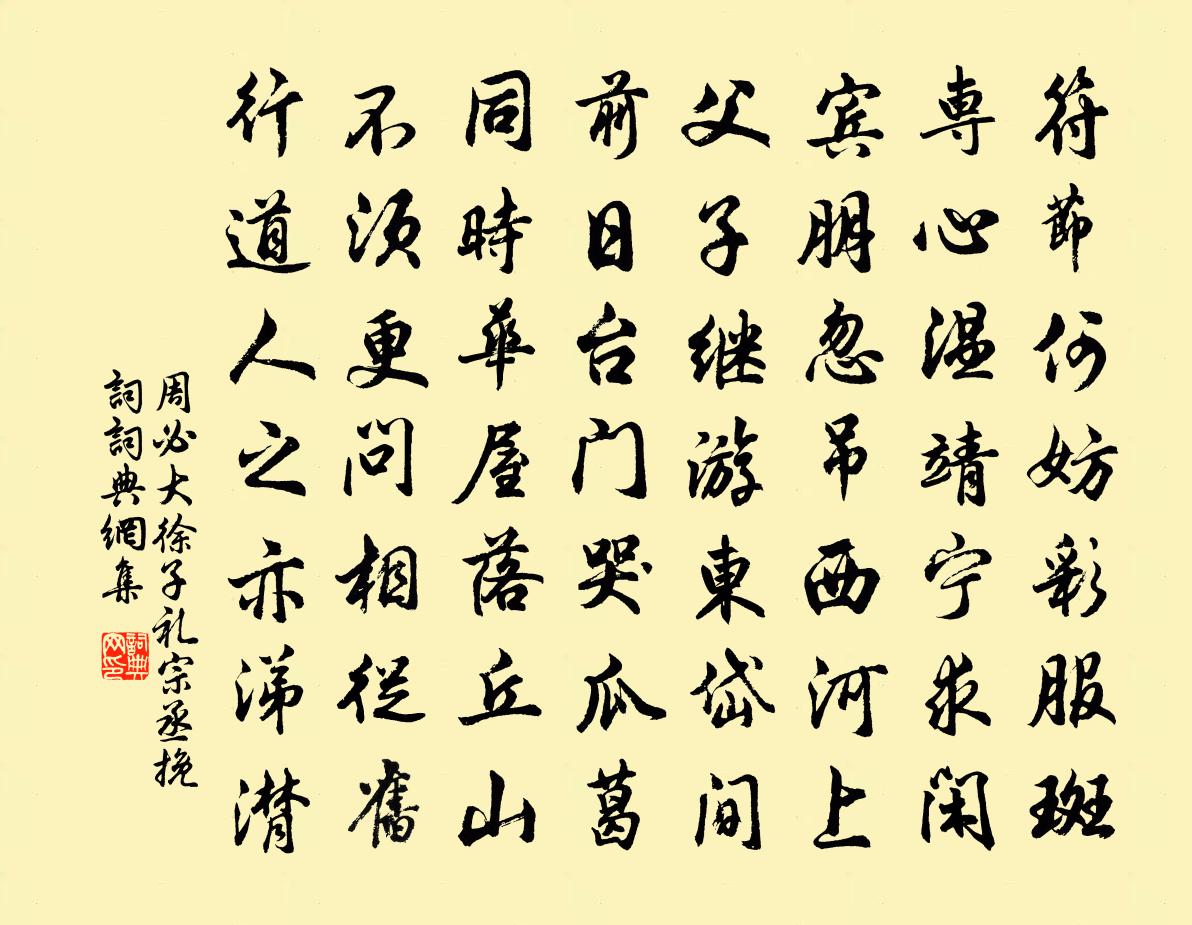 符節何妨彩服斑
専心温靖宁求闲
宾朋忽吊西河上
父子继游東岱间
前日台门哭瓜葛
同時華屋落丘山
不须更问相從舊
行道人之亦涕潸
周必大徐子礼宗丞挽
詞詞典網集